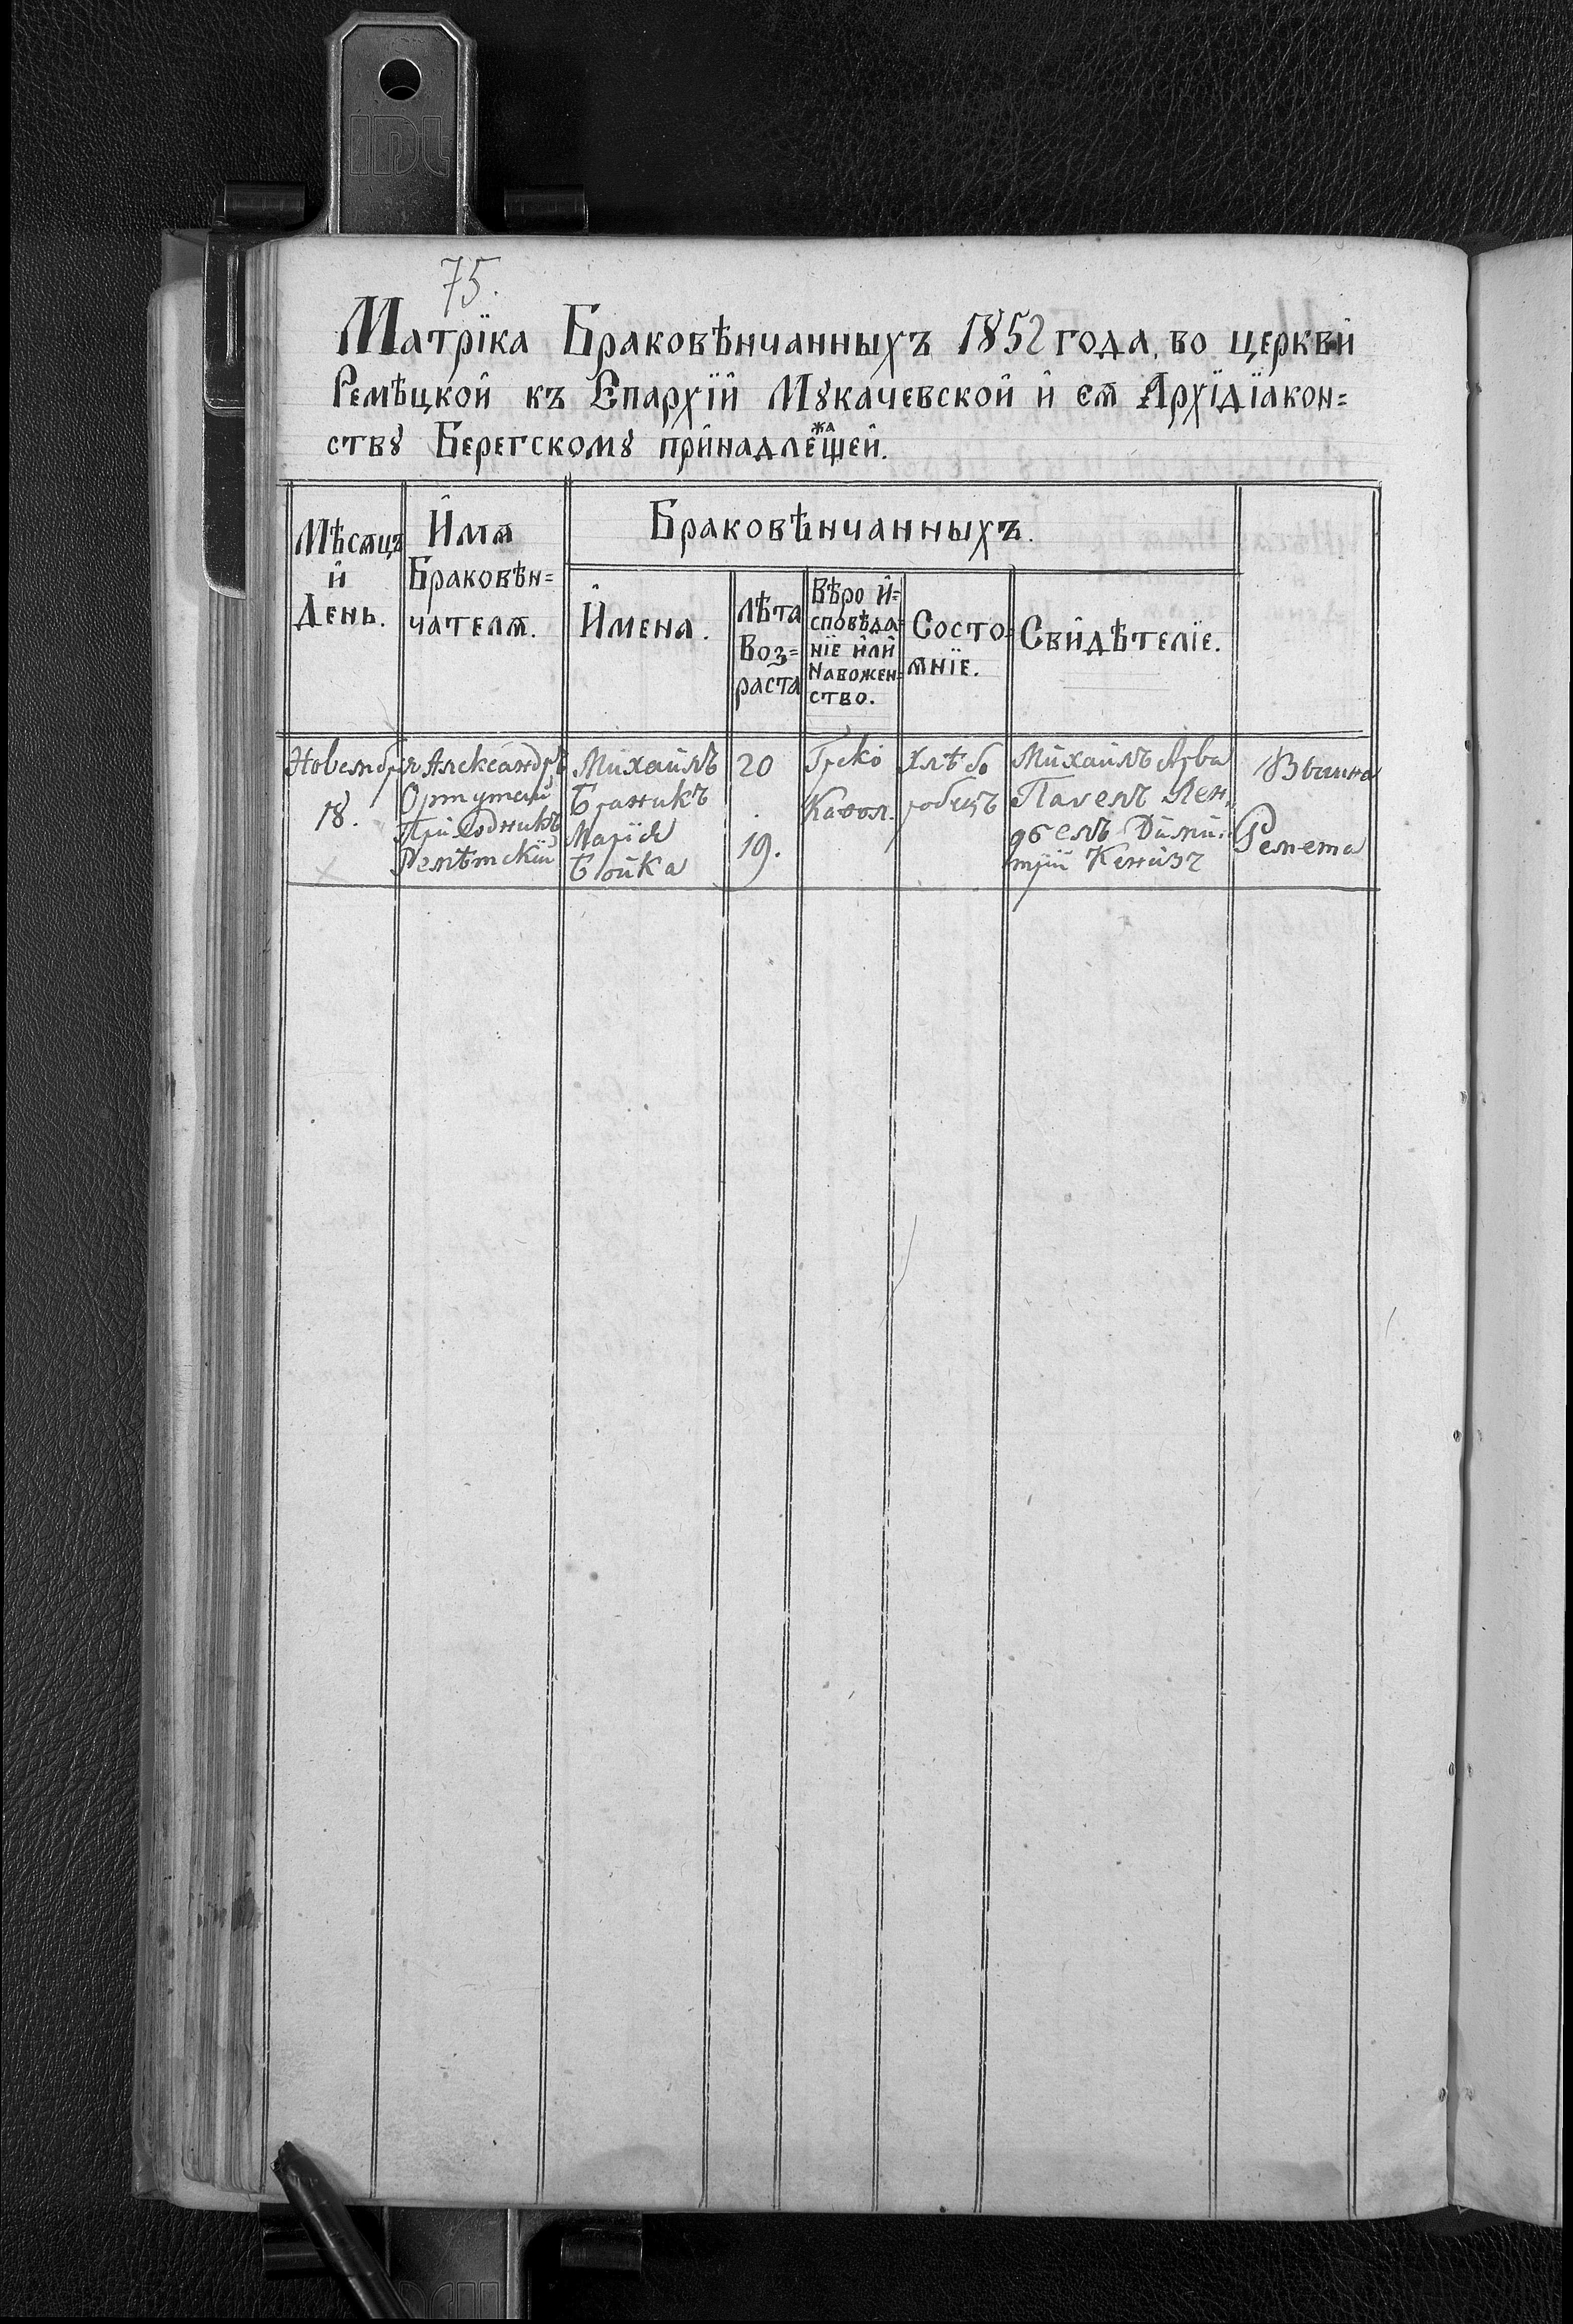 75.
Матрїка Браковѣнчанныхъ 1852 года, во церкви
Ремѣцкой къ Епархїй Мꙋкачевской й еѧ Архїдїакон=
ствꙋ Берегскомꙋ прйнадлежащей.
Мѣсѧцъ
й
День.
Ймѧ
Браковѣн=
чателѧ.
Браковѣнчанныхъ.
Ймена.
лѣта
Воз=
раста
Вѣро й=
сповѣда=
нїе йлй
Навожен=
ство.
Состо=
ѧнїе.
Свйдѣтелїе.
Новембрїя
18.
Александръ
Ортутай
Приходникъ
Ремѣтскїй
Михайлъ
Браникъ
Марїя
Бойка
20
19.
Греко
Каѳол.
Хлѣбо
робецъ
Михайлъ Арва
Павелъ Лен,
Дими,
трїй
Ремета